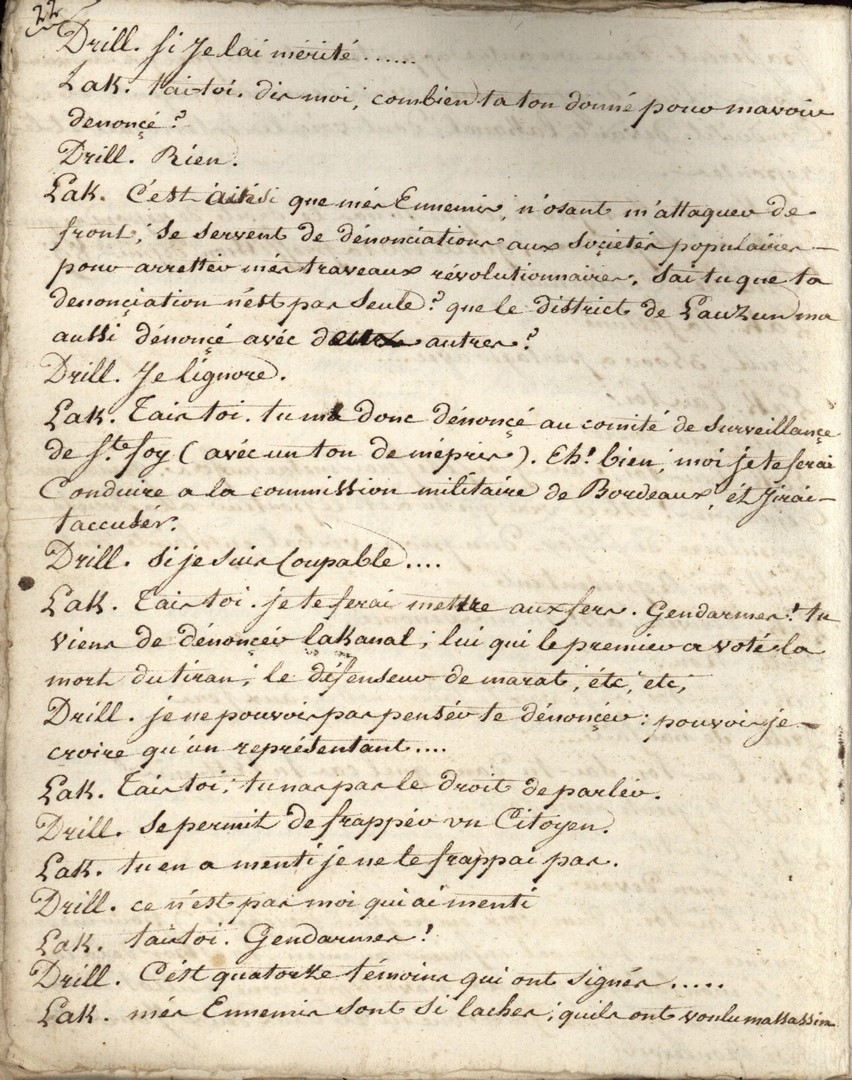 22
Drill. si Je lai mérité ......
Lak. tai toi. dis moi, combien ta ton donné pour mavoir
denoncé?
Drill. Rien.
Lak. C'est ainsi que més Ennemis, n'osant m'attaquer de
front, se servent de dénonciations aux sociétés populaires —
pour arrettér més traveaux révolutionnaires. sai tu que ta
denonciation n'est pas seule? que le district de Lauzun ma
aussi dénoncé avéc deux autres?
Drill. Je lignore.
Lak. Tais toi. tu ma donc dénoncé au comité de surveillance
de Ste foy (avéc un ton de mépris). Eh! bien, moi je te ferai
Conduire a la commission militaire de Bordeaux, ét Jirai —
taccusér.
Drill. si je suis Coupable....
Lak. Tais toi. je te ferai mettre aux fers. Gendarmes! tu
viens de dénoncér lakanal, lui qui le premier a voté la
mort du tiran, le défenseur de marat, étc, etc,
Drill. je ne pouvois pas pensér te dénoncér: pouvois je —
croire qu'un représentant....
Lak. Tais toi, tu nas pas le droit de parlér.
Drill. se permit de frappér un Citoyen.
Lak. tu en a menti je ne le frappai pas.
Drill. ce n'est pas moi qui ai menti
Lak. tais toi. Gendarmes!
Drill. C'ést quatorze témoins qui ont signés .....
Lak. més Ennemis sont si laches, quils ont voulu massassin